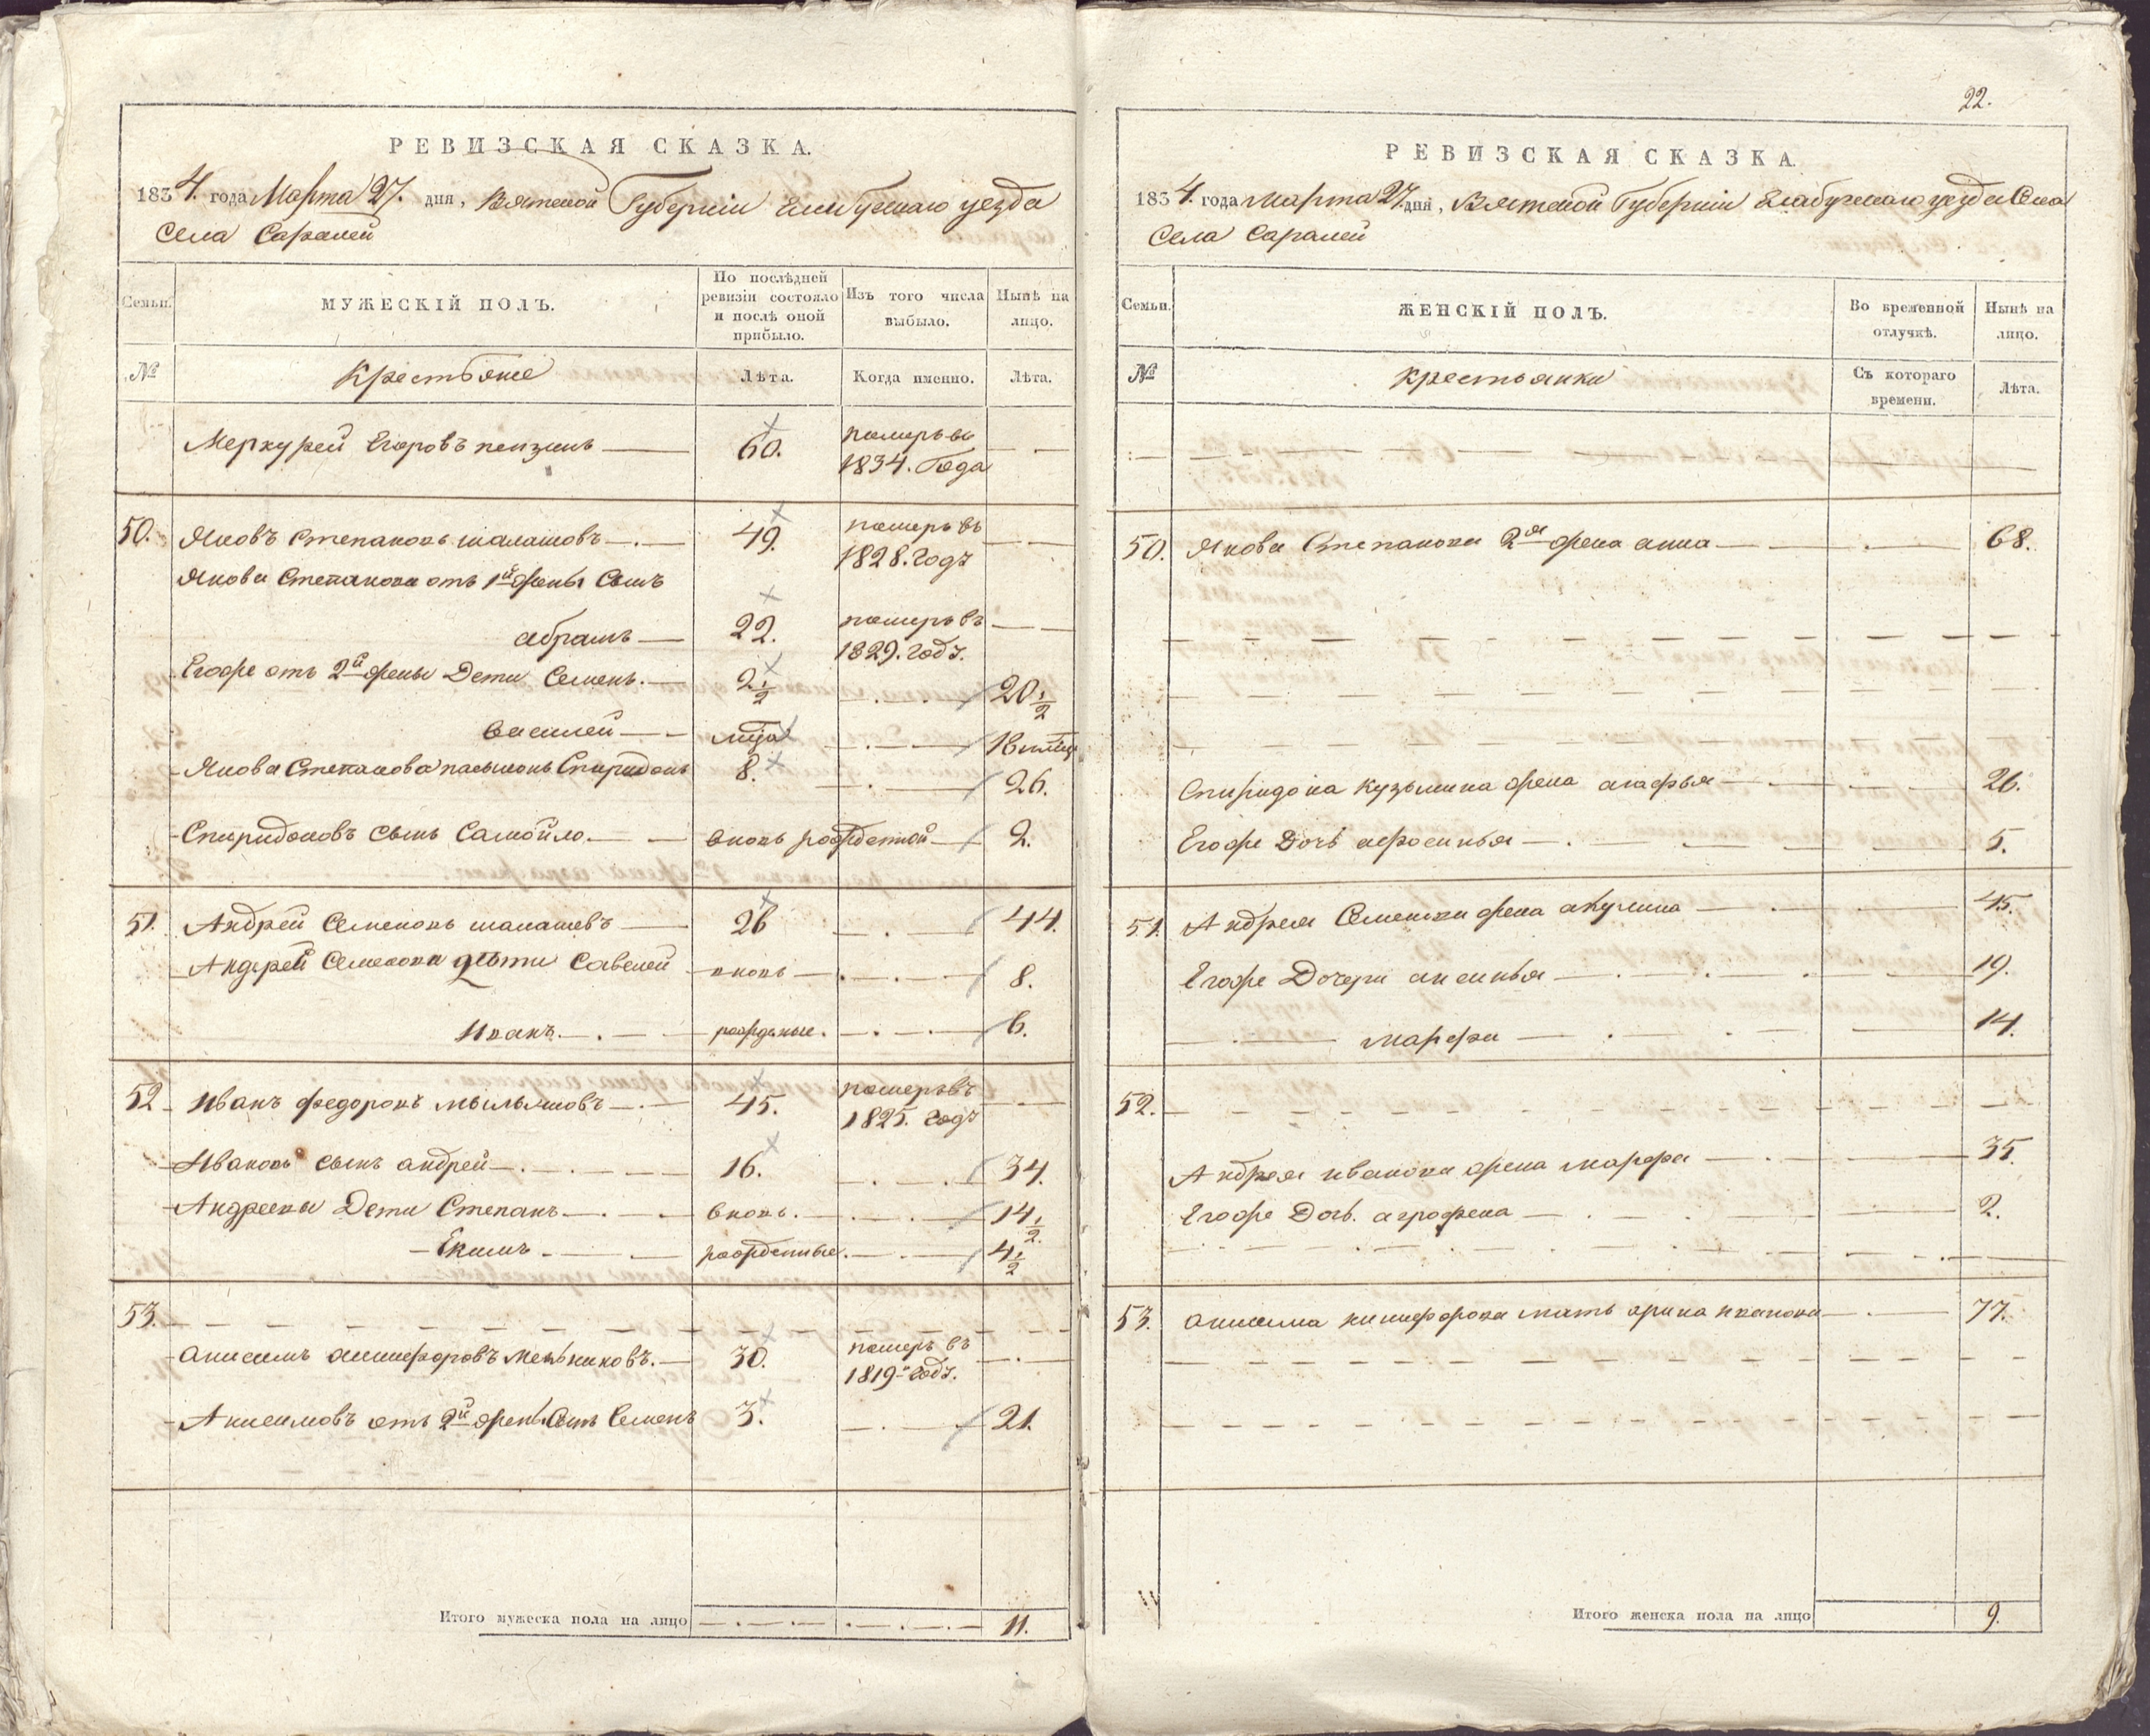 РЕВИЗСКАЯ СКАЗКА.
1834. года Марта 27. дня, Вятской Губерніи Елабускаго уезда
Села Саралей
Семьи.
МУЖЕСКІЙ ПОЛЪ.
По послѣдней ревизіи состояло и послѣ оной прибыло.
Изъ того числа выбыло.
Нынѣ на лицо.
№
Крестьяне
Лѣта.
Когда именно.
Лѣта.
Меркурей Егоровъ пензинъ 60. померъ въ 1834. Года
50. Яковъ Степановъ шалашовъ 49. померъ въ 1828. годъ
Якова Степанова отъ 1й жены Сынъ
абрамъ 22. померъ въ 1829. годъ.
Егоже от 2й жены Дети Семенъ. 2 1/2 20 1/2
василей 18
Якова Степанова пасынокъ Спиридонъ 8. 26.
Спиридоновъ сынъ Самойло. вновь рожденной 2.
51. Андрей Семеновъ шалашевъ 26 44.
Андрей Семенова дѣти Савелей вновь 8.
Иванъ. рожденые. 6.
52 Иванъ федоровъ мыльниовъ 45. померъ въ 1825. годъ
Ивановъ сынъ андрей 16. 34.
Андреева Дети Степанъ вновь. 14 1/2.
Екимъ рожденные. 4 1/2
53.
анисимъ никифоровъ Мельниковъ. 30. померъ въ 1819 годъ.
Анисимовъ отъ 2й жены Сынъ Семенъ 3. 21.
Итого мужеска пола на лицо 11.
22.
РЕВИЗСКАЯ СКАЗКА.
1834. года марта 27. дня, Вятской Губерніи Елабускаго уезда Села
Села Саралей
Семьи.
ЖЕНСКІЙ ПОЛЪ.
Во временной отлучкѣ.
Нынѣ на лицо.
№
Крестьянки
Съ котораго времени.
Лѣта.
50. Якова Степанова 2я жена анна 68.
Спиридона Кузьмина жена агафья 26.
Егоже Дочь афросинья 5.
51. Андрея Семенова жена акулина 45.
Егоже Дочери аксинья 19.
марфа 14.
52.
Андрея иванова жена марфа 35.
Егоже Дочь. аграфена 2.
53. анисима никифорова мать арина иванова 77.
Итого женска пола на лицо 9.